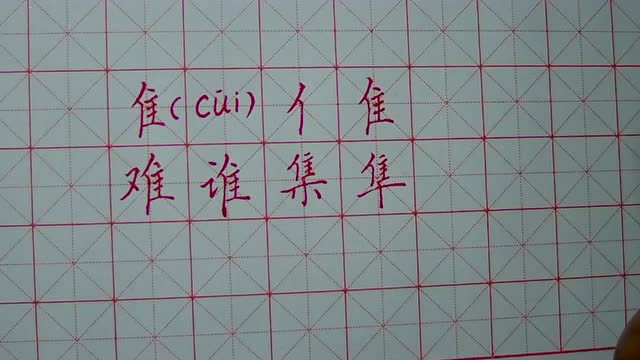 隹(cūi) 亻 隹
难 谁 集 隼